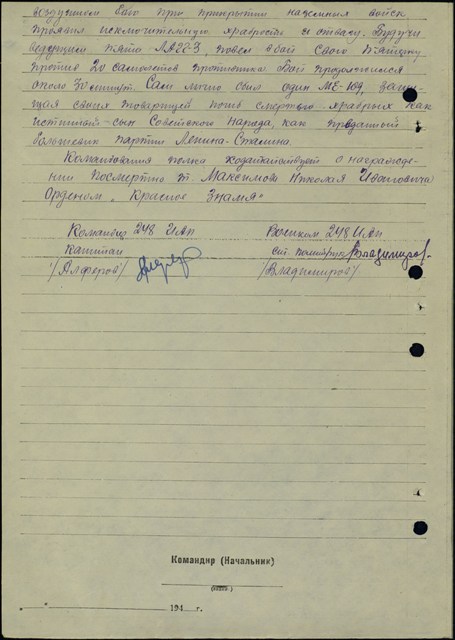 воздушном бою при прикрытии наземных войск
проявил исключительную храбрость и отвагу. Будучи
ведущим пята ЛАГГ-3, повел в бой свою пятерку
против 20 самолетов противника Бой продолжался
около 30 минут. Сам лично сбил один МЕ-109, защи-
щая своих товарищей погиб смертью храбрых как
истинный сын Советского народа, как преданный
большевик партии Ленина-Сталина.
Командования полка ходатайствует о награжде-
нии посмертно т. Максимова Николая Ивановича
Орденом „Красное Знамя"
Командир 248 ИАП
Военком 248 ИАП
капитан
ст. политрук Владимиров
/Алферов/
/Владимиров/
Командир (Начальник)
194 г.